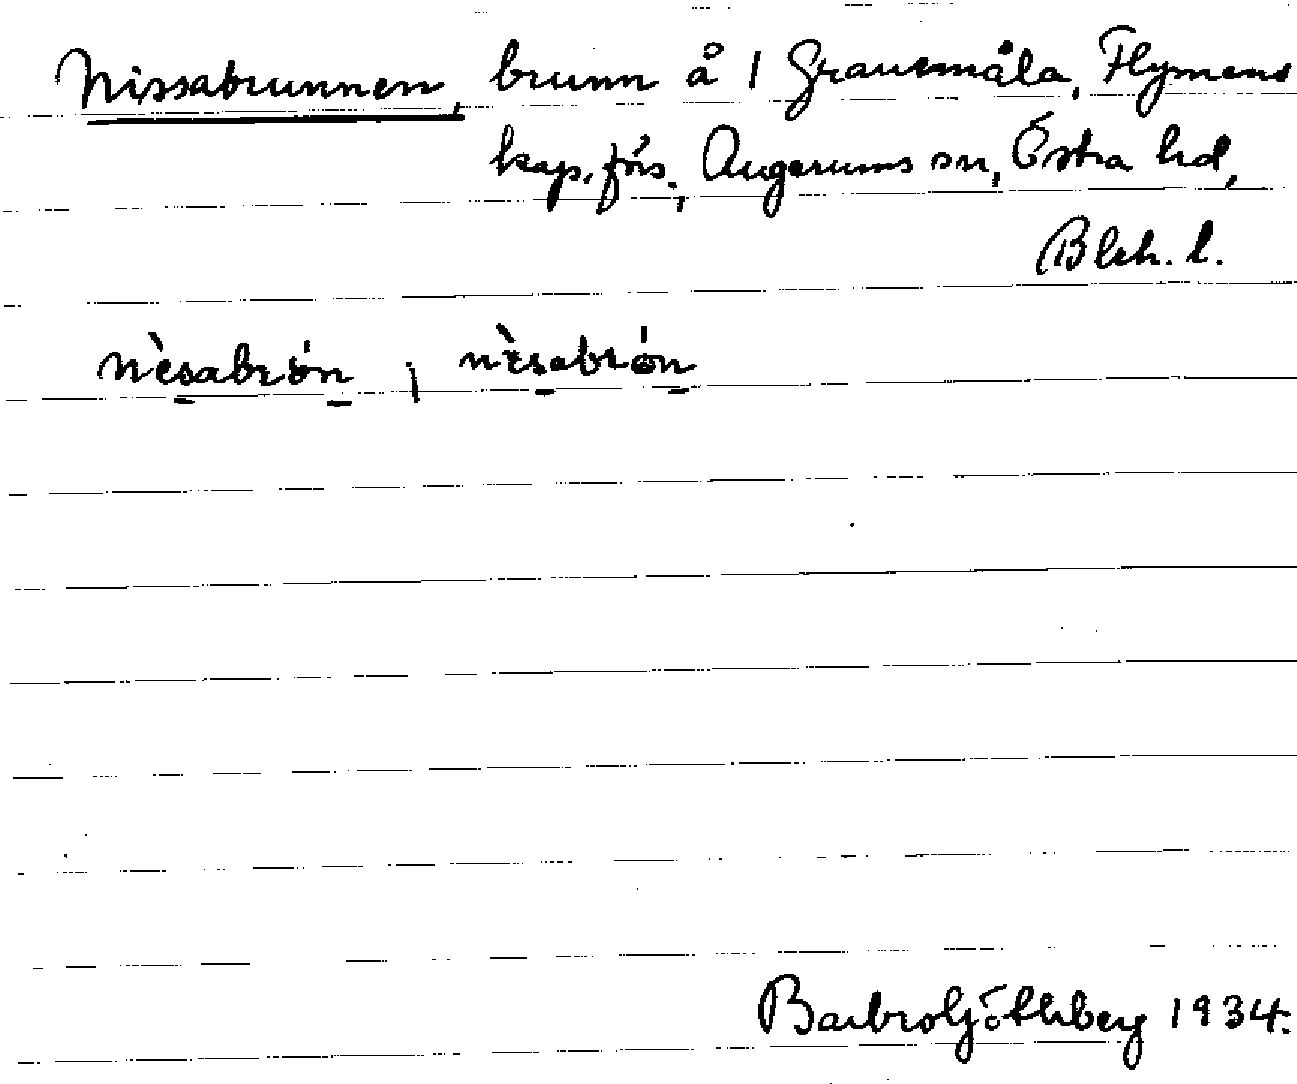 Nissabrunnen, brunn å 1 Gravemåla, Flymens
kap. förs., Augerums sn, Östra hd,
Blek. l.
nèsabrón, nèsabrón
Barbro Göthberg 1934.